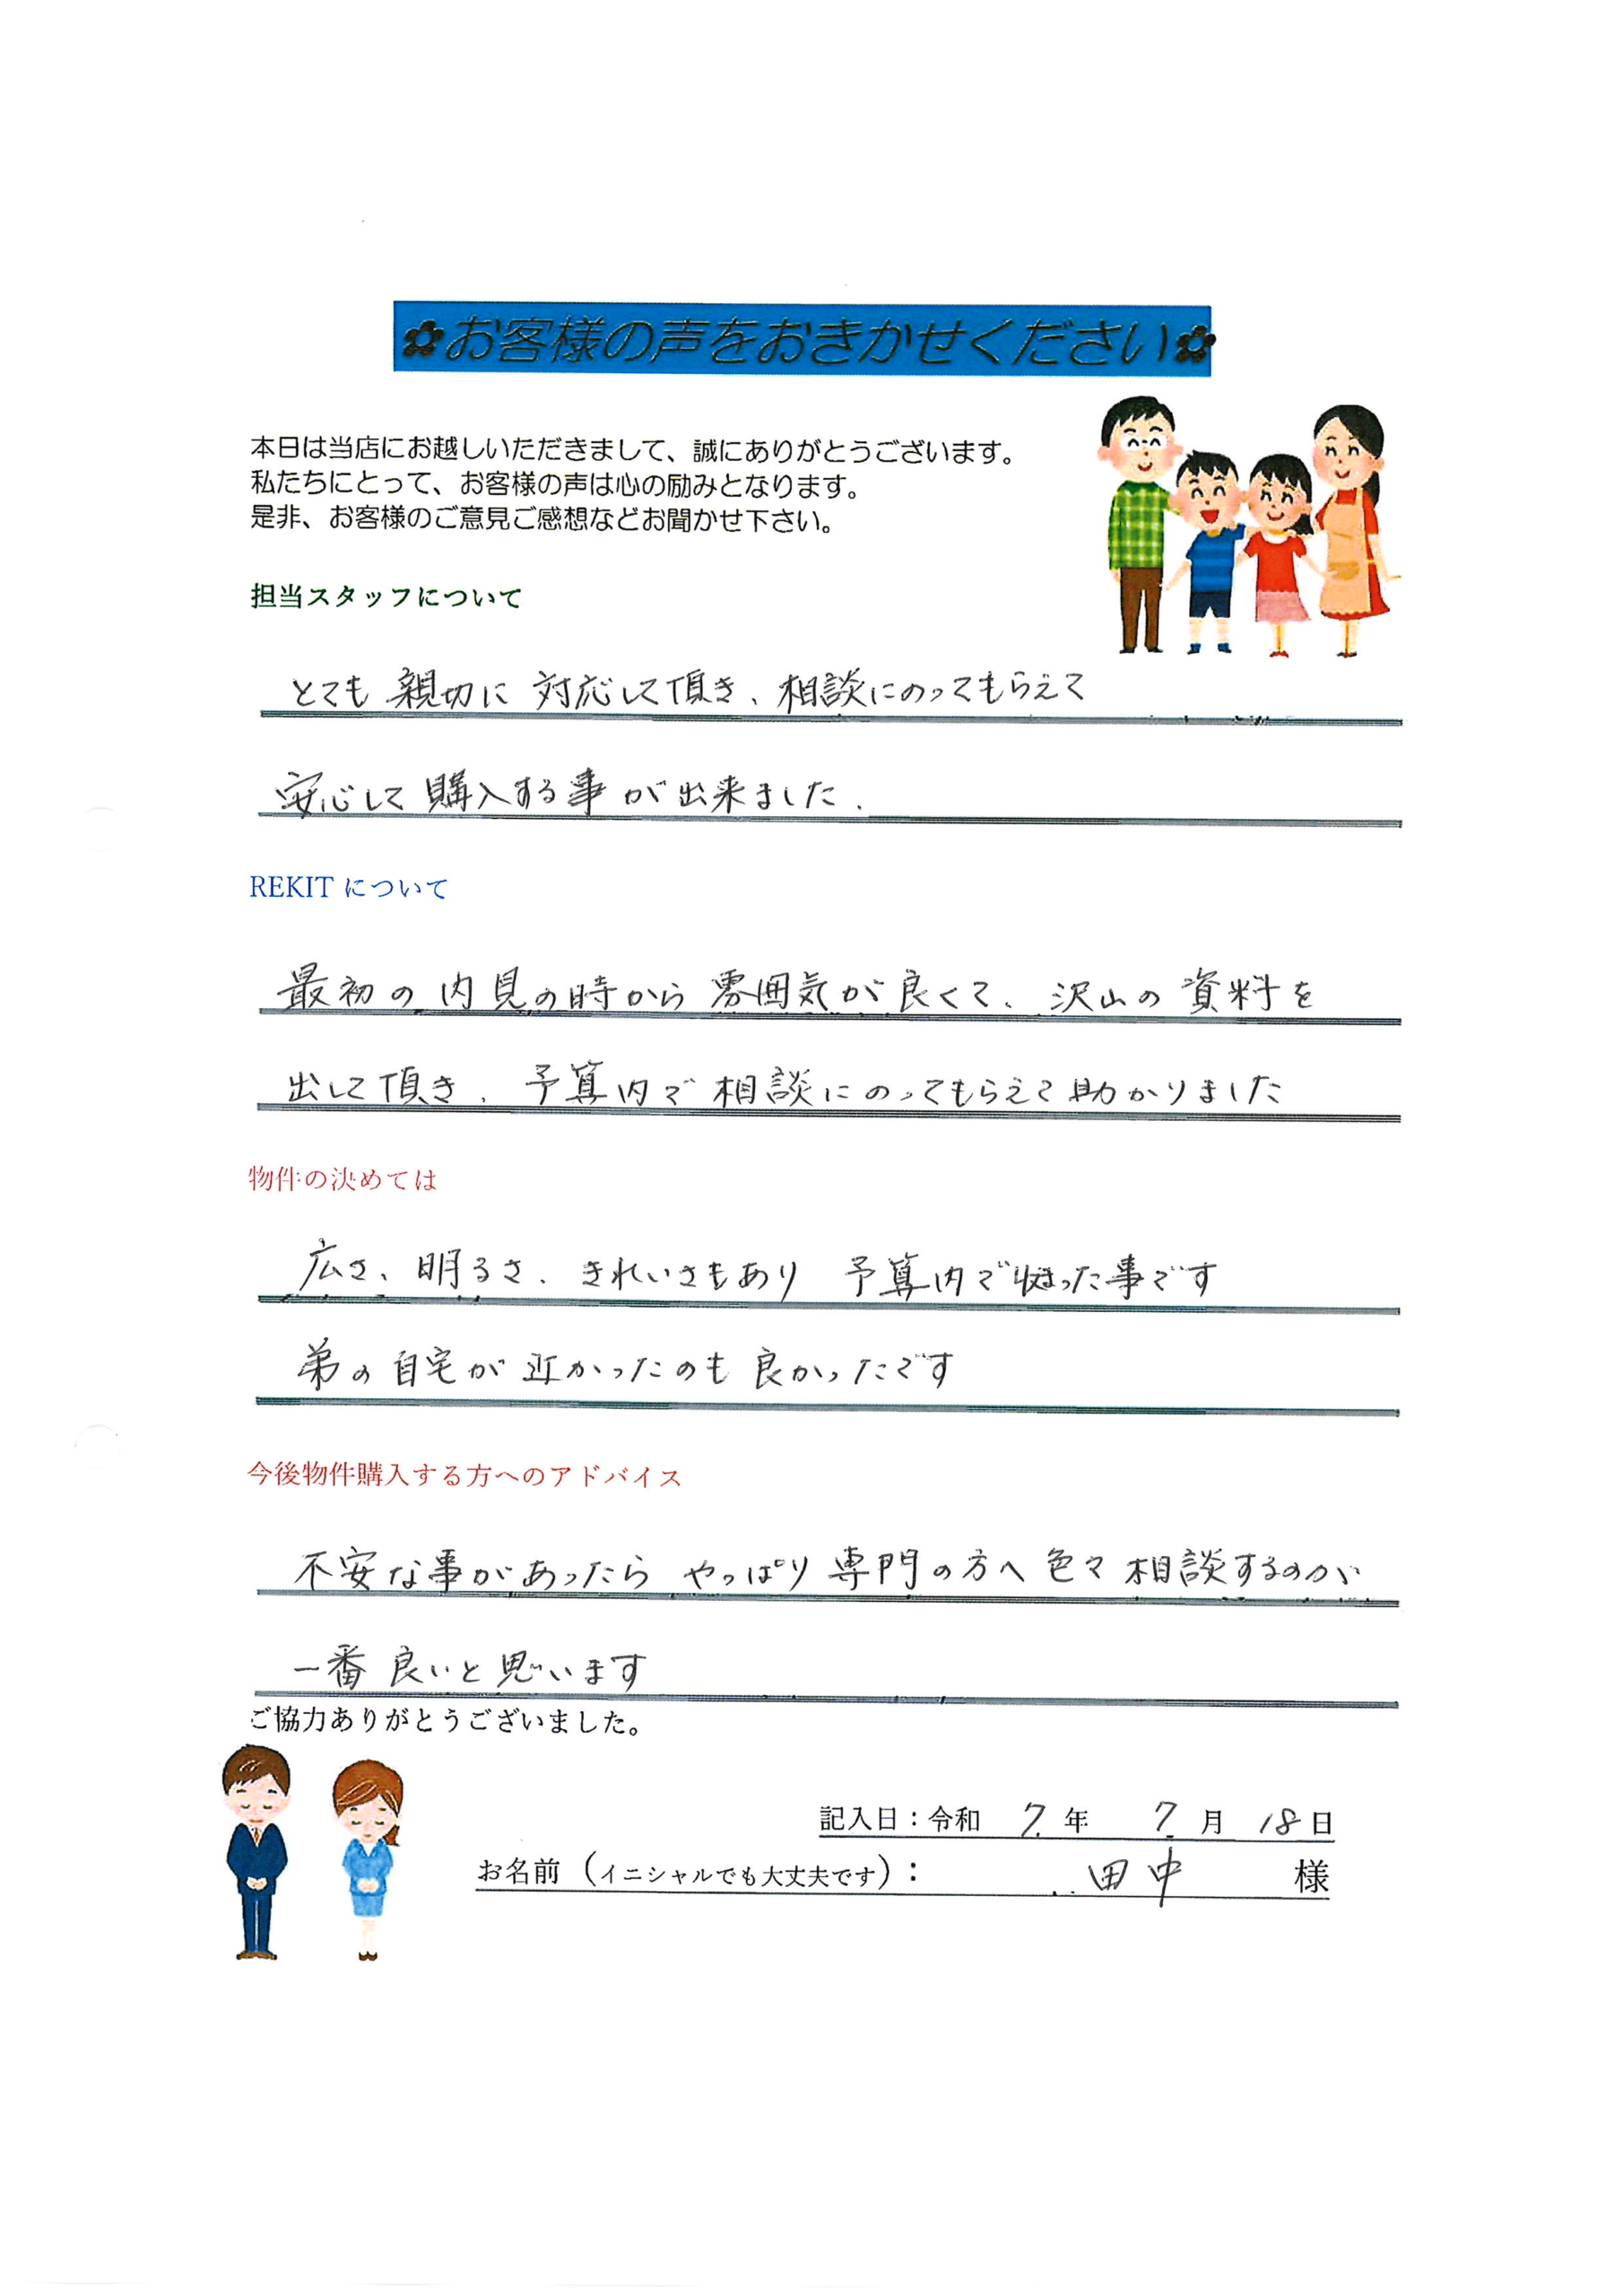 ✿お客様の声をおきかせください✿
本日は当店にお越しいただきまして、誠にありがとうございます。
私たちにとって、お客様の声は心の励みとなります。
是非、お客様のご意見ご感想などお聞かせ下さい。
担当スタッフについて
とても親切に対応して頂き、相談にのってもらえて
安心して購入する事が出来ました.
REKIT について
最初の内見の時から雰囲気が良くて、沢山の資料を
出して頂き、予算内で相談にのってもらえて助かりました
物件の決めては
広さ、明るさ、きれいさもあり 予算内で収まった事です
弟の自宅が近かったのも良かったです
今後物件購入する方へのアドバイス
不安な事があったら やっぱり専門の方へ色々相談するのが
一番良いと思います
ご協力ありがとうございました。
記入日：令和 7 年 7 月 18 日
お名前（イニシャルでも大丈夫です）： 田中 様